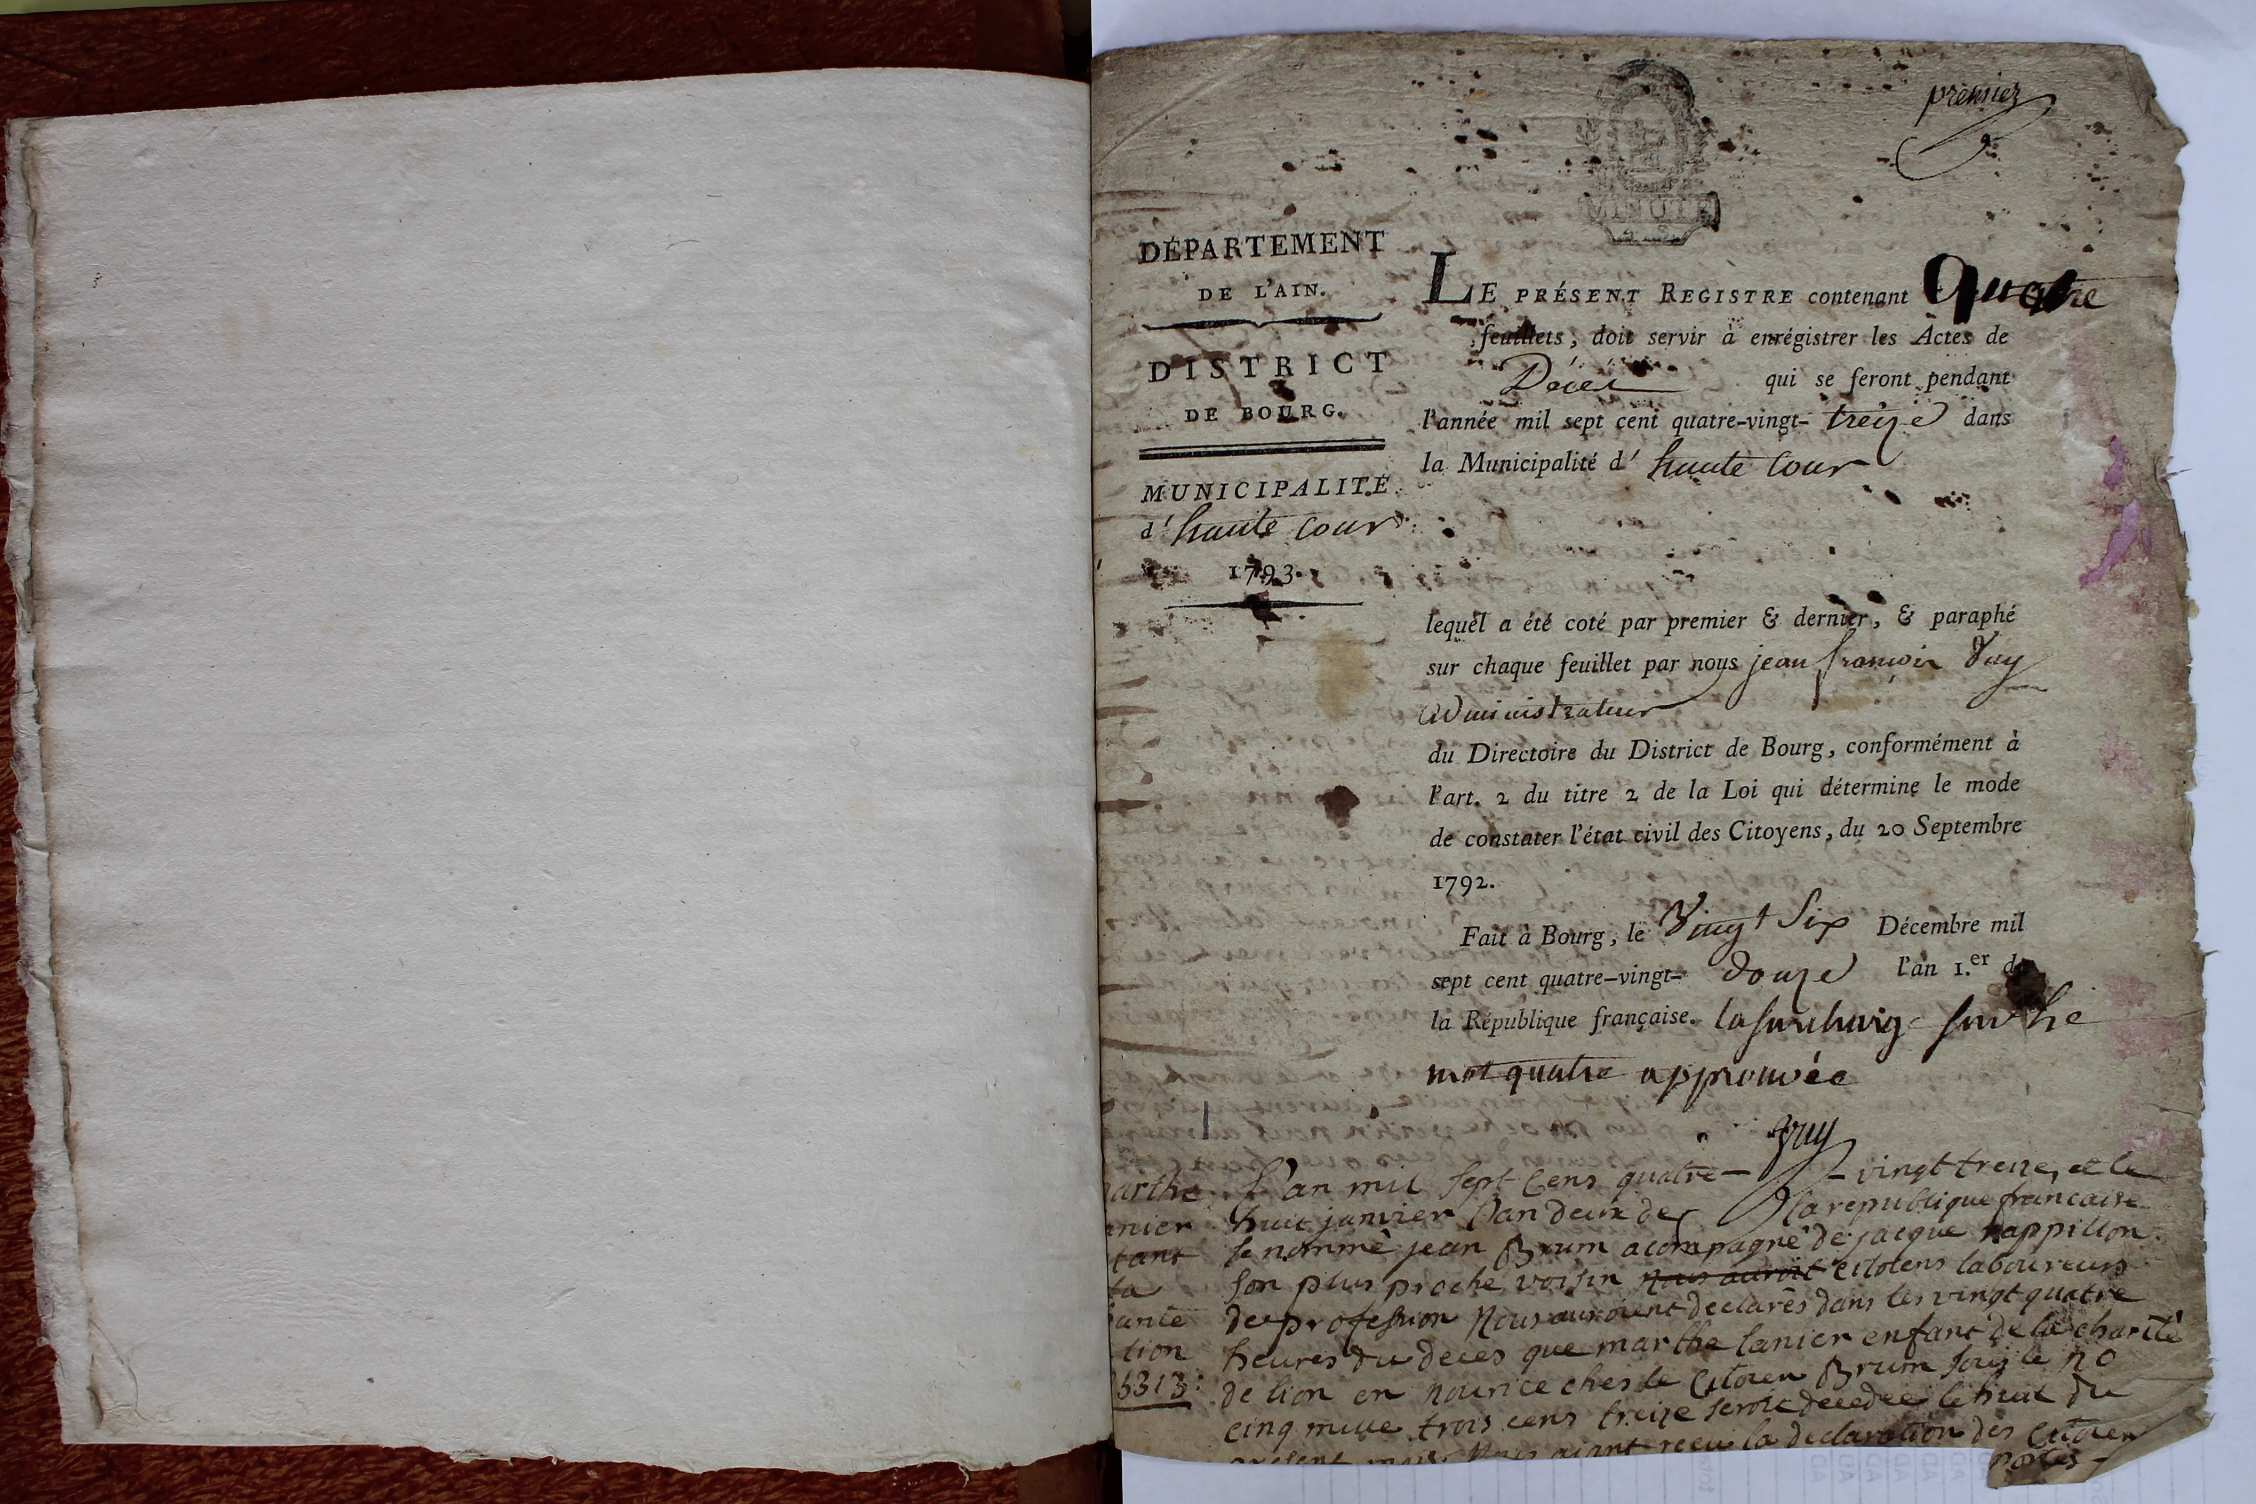 premier
MINUTE
DÉPARTEMENT
DE L'AIN.
DISTRICT
DE BOURG.
MUNICIPALITÉ
d' haute Cour
1793.
LE PRÉSENT REGISTRE contenant Quatre
feuillets, doit servir à enrégistrer les Actes de
Décès qui se feront pendant
l'année mil sept cent quatre-vingt- treize dans
la Municipalité d' haute Cour
lequel a été coté par premier & dernier, & paraphé
sur chaque feuillet par nous jean françois
administrateur
du Directoire du District de Bourg, conformément à
l'art. 2 du titre 2 de la Loi qui détermine le mode
de constater l'état civil des Citoyens, du 20 Septembre
1792.
Fait à Bourg, le Vingt Six Décembre mil
sept cent quatre-vingt- douze l'an 1.er de
la République française. la surcharge sur le
mot quatre approuvée
L'an mil sept cens quatre - vingt treize, et le
huit janvier l'an deux de la republique francaise
le nommé jean Brum acompagné de jacque pappillon
son plus proche voisin nous auroit citoiens laboureurs
de profession Nous auroient declarés dans les vingt quatre
heures du deces que marthe lanier enfant de la charité
de lion en nourice ches le Citoien Brum sous le no
cinq mille trois cens treize seroit decedee le huit du
present mois Nous aiant reçu la declaration des Citoien
arthe
anier
tant
la
arité
lion
5313: